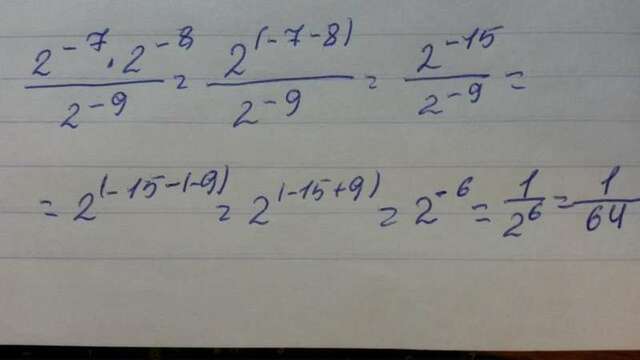 2^-7 · 2^-8 / 2^-9 = 2^(-7-8) / 2^-9 = 2^-15 / 2^-9 =
= 2^(-15-(-9) = 2^(-15+9) = 2^-6 = 1/2^6 = 1/64